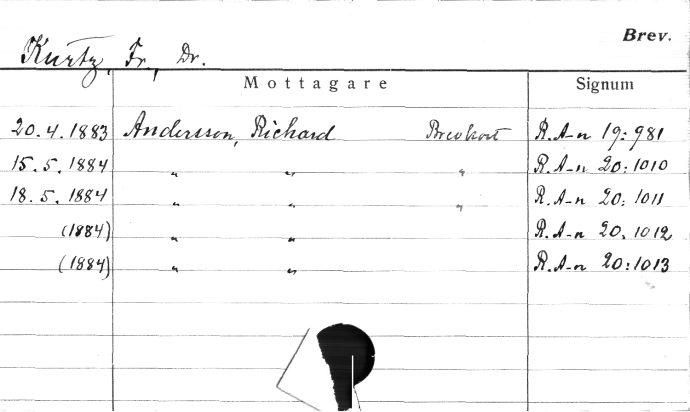 Brev.
Kurtz, Fr., Dr.
Mottagare Signum
20.4.1883 Andersson, Richard Brevkort R.A-n 19:981
15.5.1884 „ „ „ R.A-n 20:1010
18.5.1884 „ „ „ R.A-n 20:1011
(1884) „ „ R.A-n 20.1012
(1884) „ „ R.A-n 20:1013